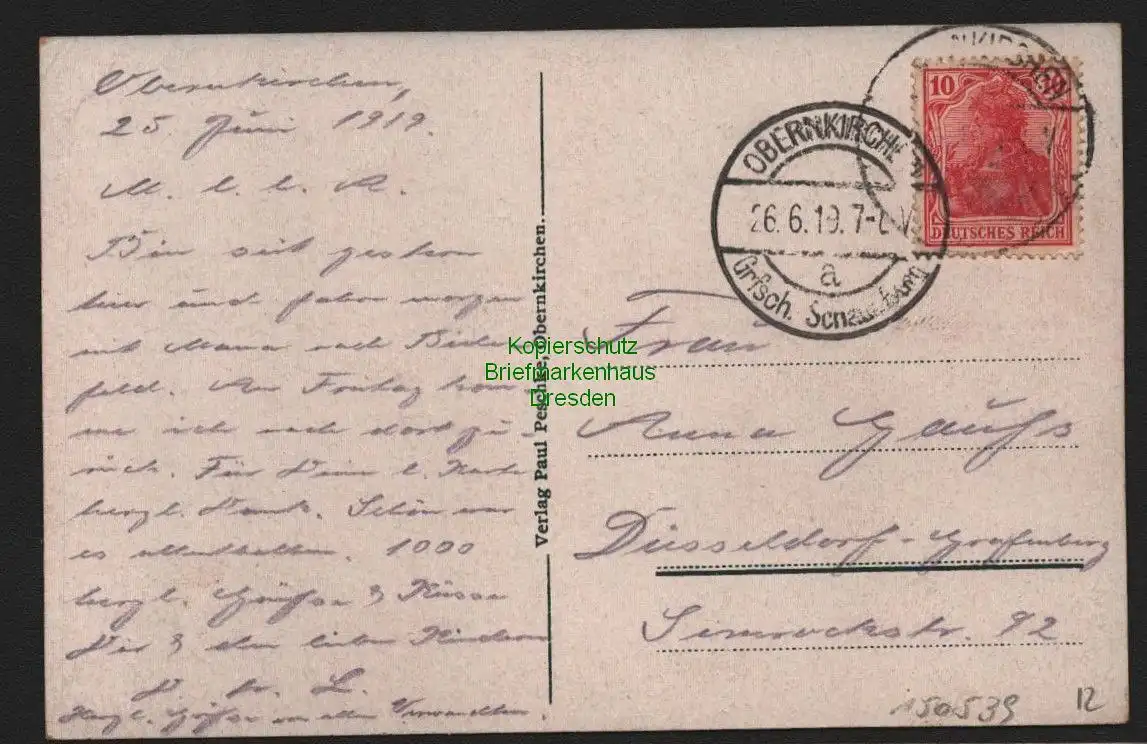 Obernkirchen,
25. Juni 1919.
M. l. l. R.
Bin seit gestern
hier und fahre morgen
mit Mama nach Biele-
feld. Am Freitag kom-
me ich nach dort zu-
rück. Für Deine l. Karte
herzl. Dank. Schön war
es allenthalben. 1000
herzl. Grüsse & Küsse
Dir & den lieben Kindern
D. tr. L.
Herzl. Grüsse von allen Verwandten.
Verlag Paul Peschke, Obernkirchen.
NKIRCHEN
OBERNKIRCHEN
26.6.19.7-8V
a
Grfsch. Schaumburg
10
DEUTSCHES REICH
Kopierschutz
Briefmarkenhaus
Dresden
Frau
Anna Gauhs
Düsseldorf-Grafenberg
Simrockstr. 92
150539
12